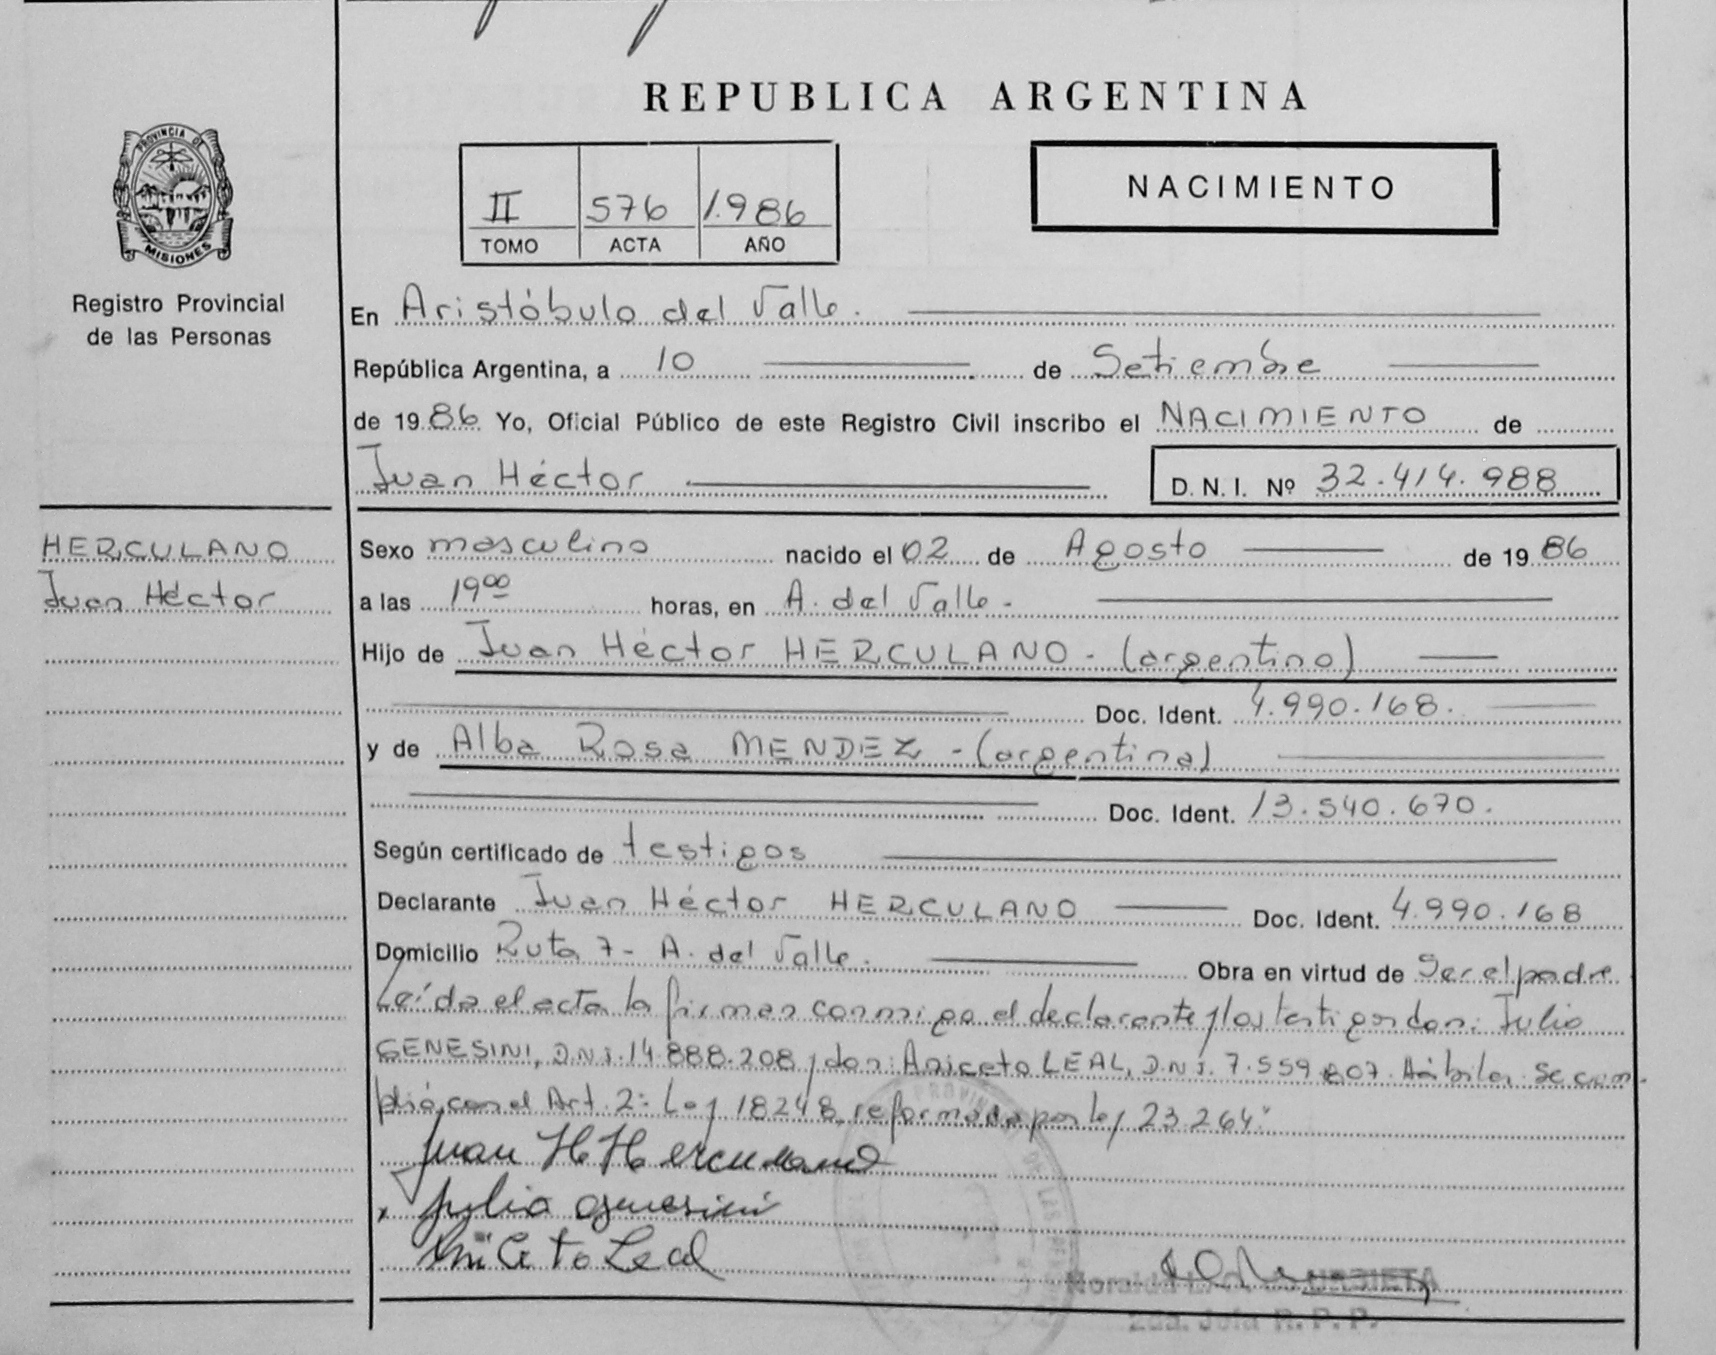 REPUBLICA ARGENTINA
PROVINCIA DE
MISIONES
Registro Provincial
de las Personas
II 576 1.986
TOMO ACTA AÑO
NACIMIENTO
En Aristóbulo del Valle.
República Argentina, a 10 de Setiembre
de 1986 Yo, Oficial Público de este Registro Civil inscribo el NACIMIENTO de
Juan Héctor
D. N. I. Nº 32.414.988
HERCULANO
Juan Héctor
Sexo masculino nacido el 02 de Agosto de 1986
a las 1900 horas, en A. del Valle.
Hijo de Juan Héctor HERCULANO - (argentino)
Doc. Ident. 4.990.168.
y de Alba Rosa MENDEZ - (argentina)
Doc. Ident. 13.540.670.
Según certificado de testigos
Declarante Juan Héctor HERCULANO Doc. Ident. 4.990.168
Domicilio Ruta 7 - A. del Valle. Obra en virtud de ser el padre
Leída el acta la firman conmigo el declarante y los testigos don: Julio
GENESINI, D.N.I. 14.888.208 y don: Aniceto LEAL, D.N.I. 7.559.807. Hábiles. Se cum-
plió con el Art. 2º Ley 18248, reformada por ley 23.264.
Juan H Herculano
Julio Genesini
Aniceto Leal
URBIETA
2da. Jefa R. P. P.